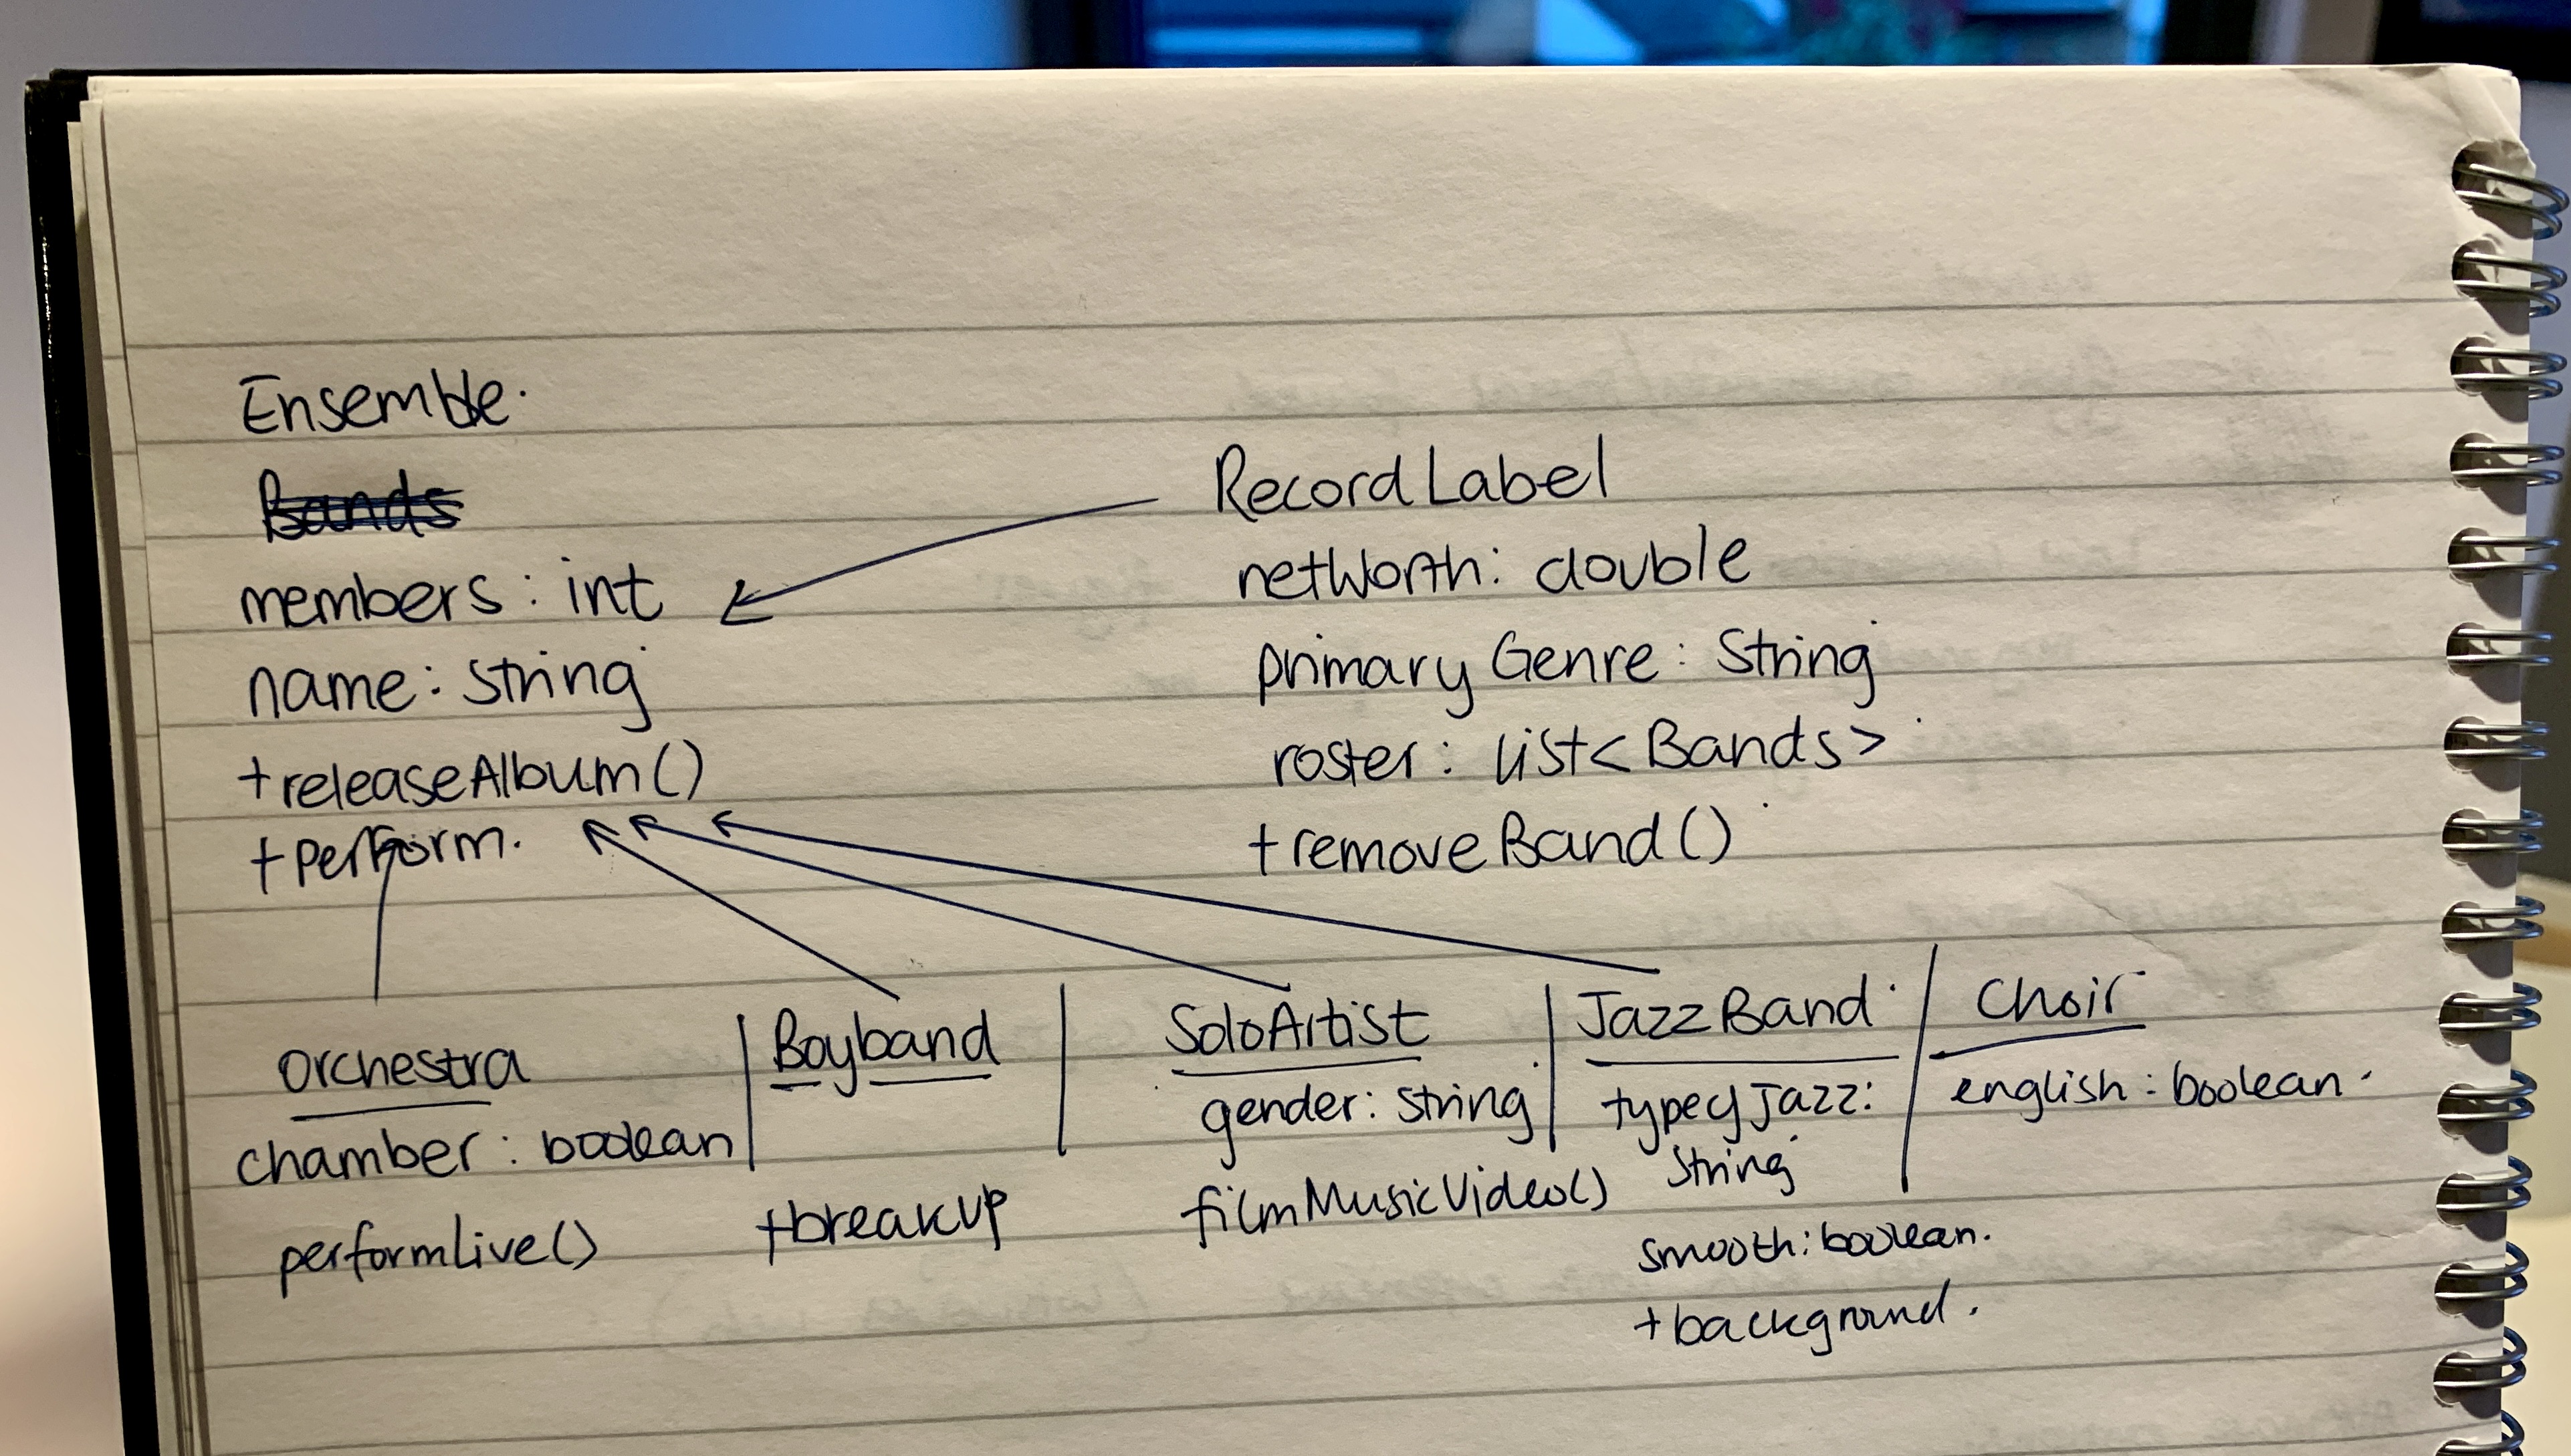 Ensemble.
Bands
members : int
name : string
+ releaseAlbum()
+ perform.
Record Label
netWorth : double
primary Genre : String
roster : list<Bands>
+ remove Band ()
orchestra
chamber : boolean
performLive()
Boyband
+breakup
SoloArtist
gender : string
filmMusicVideo()
Jazz Band
typeofJazz:
String
smooth: boolean.
+background.
Choir
english : boolean.